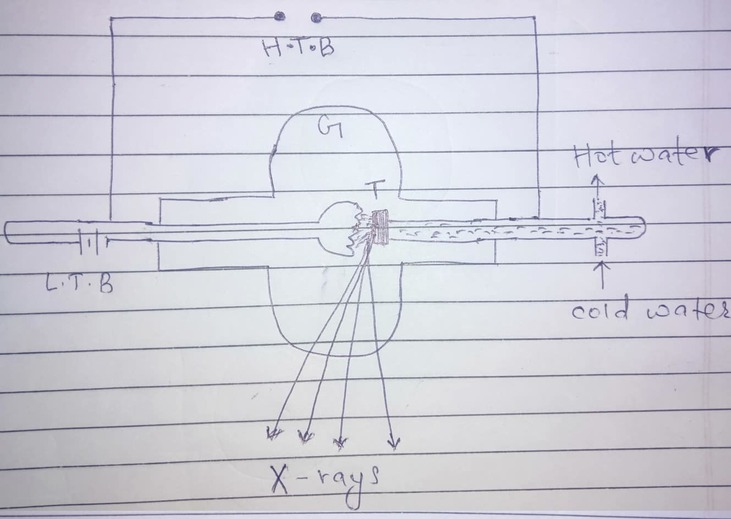 H.T.B
G
T
Hot water
L.T.B
cold water
X-rays